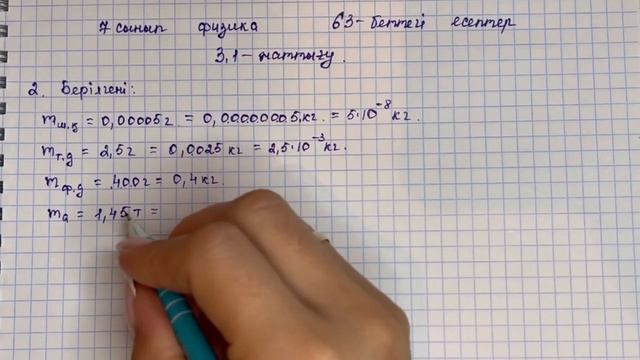 7 сынып физика 63-беттегі есептер
3,1-жаттығу.
2. Берілгені:
mш.қ = 0,00005г = 0,00000005кг = 5·10⁻⁸ кг.
mт.д = 2,5г = 0,0025 кг = 2,5·10⁻³ кг.
mф.д = 400г = 0,4 кг.
mа = 1,45т =